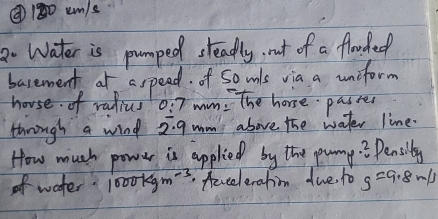 ⓓ 120 km/s
2. Water is pumped steadly out of a flooded
basement at a speed of 50 m/s via a uniform
horse of radius 0.7 mm. The horse passes
through a wind 2.9 mm above the water line.
How much power is applied by the pump? Density
of water 1000 kgm⁻³. Acceleration due to g = 9.8 m/s